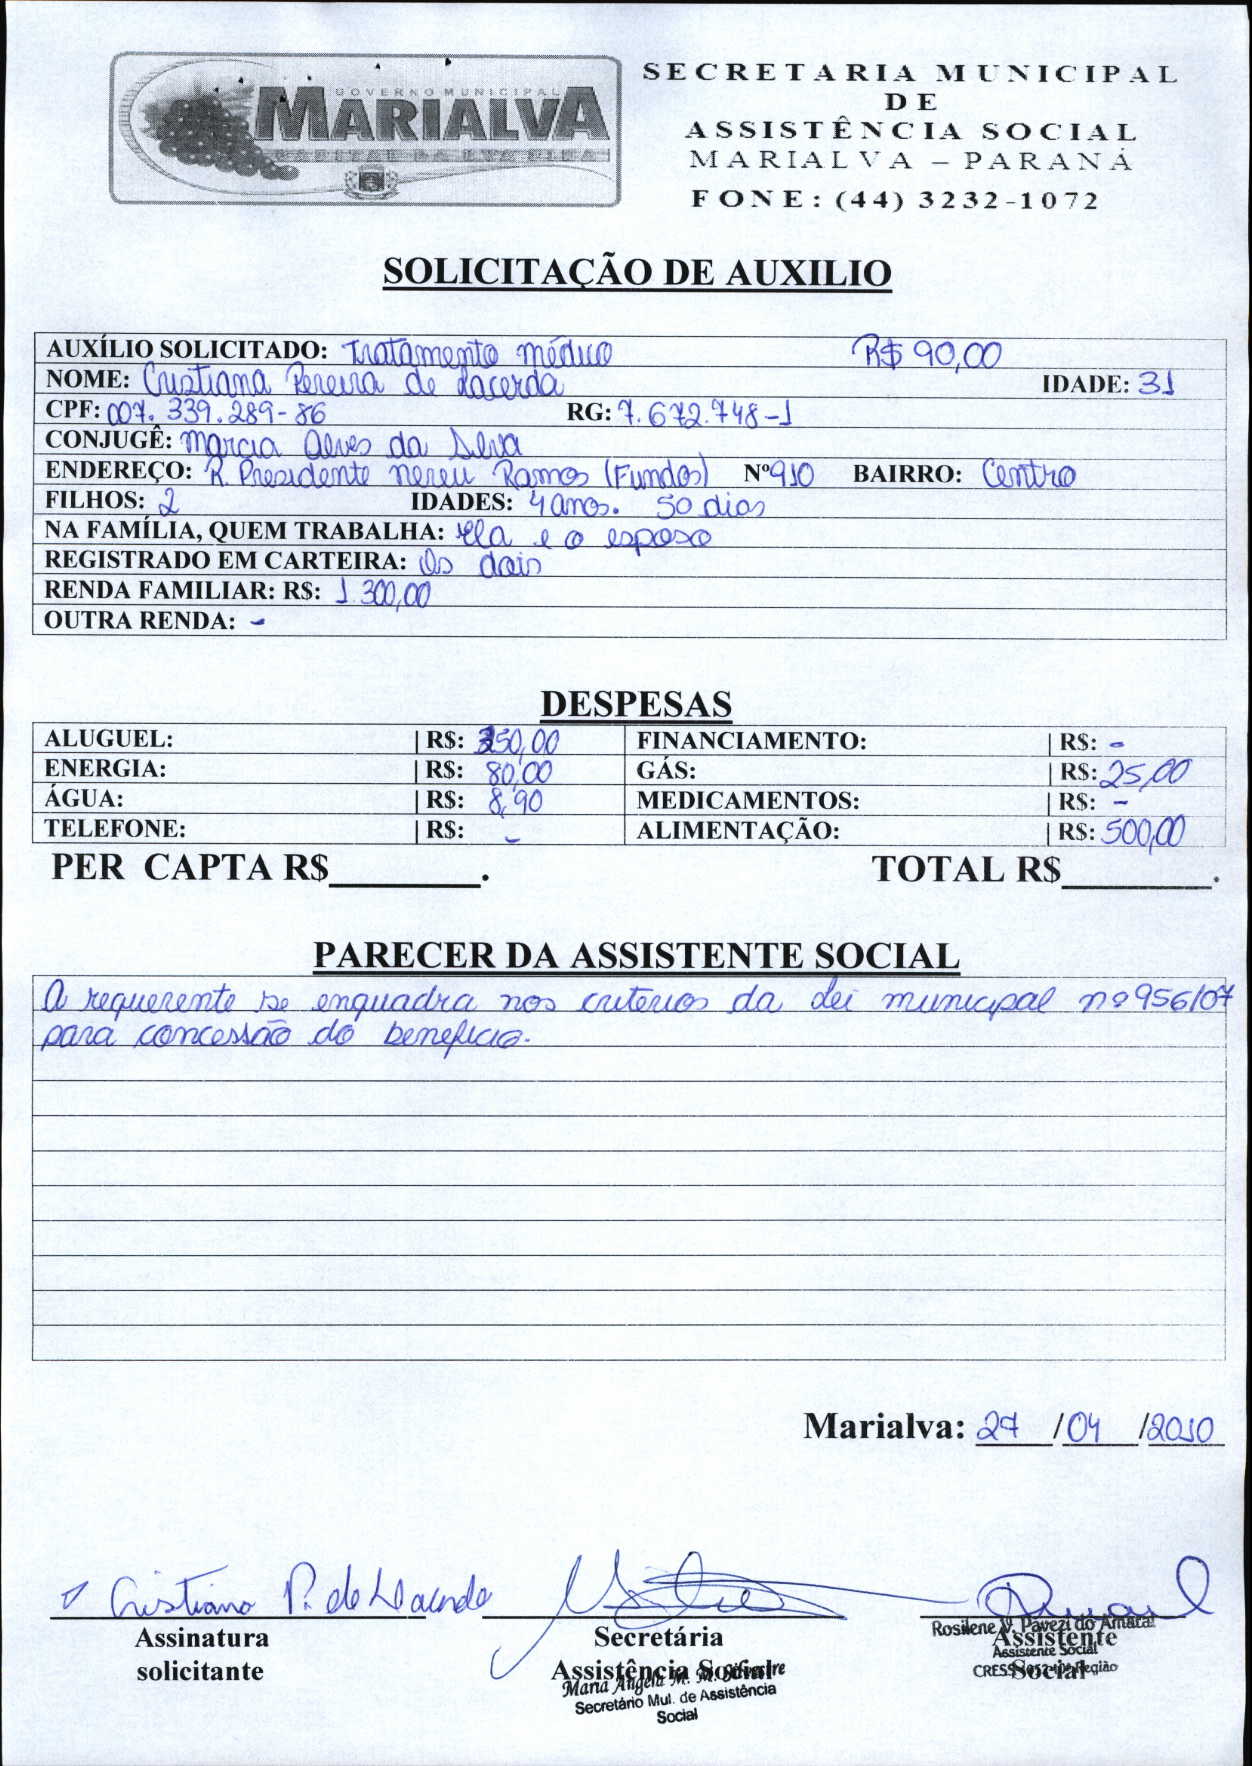 GOVERNO MUNICIPAL
MARIALVA
CAPITAL DA UVA FINA
SECRETARIA MUNICIPAL
DE
ASSISTÊNCIA SOCIAL
MARIALVA – PARANÁ
FONE: (44) 3232-1072
SOLICITAÇÃO DE AUXILIO
AUXÍLIO SOLICITADO: Tratamento médico R$ 90,00
NOME: Cristiana Pereira de Lacerda IDADE: 31
CPF: 007.339.289-86 RG: 7.672.748-1
CONJUGÊ: Marcia Alves da Silva
ENDEREÇO: R. Presidente Nereu Ramos (Fundos) Nº 910 BAIRRO: Centro
FILHOS: 2 IDADES: 4 anos. 50 dias
NA FAMÍLIA, QUEM TRABALHA: Ela e o esposo
REGISTRADO EM CARTEIRA: Os dois
RENDA FAMILIAR: R$: 1.300,00
OUTRA RENDA: -
DESPESAS
ALUGUEL: | R$: 350,00 FINANCIAMENTO: | R$: -
ENERGIA: | R$: 80,00 GÁS: | R$: 25,00
ÁGUA: | R$: 8,90 MEDICAMENTOS: | R$: -
TELEFONE: | R$: - ALIMENTAÇÃO: | R$: 500,00
PER CAPTA R$________. TOTAL R$________.
PARECER DA ASSISTENTE SOCIAL
A requerente se enquadra nos criterios da Lei municipal nº 956/07
para concessão do beneficio.
Marialva: 27 /04 /2010
Cristiana P. de Lacerda
Assinatura
solicitante
Secretária
Assistência Social
Maria Angela M. M. Silvestre
Secretário Mul. de Assistência
Social
Rosilene V. Pavezi do Amaral
Assistente
Assistente Social
CRESS Região
Social